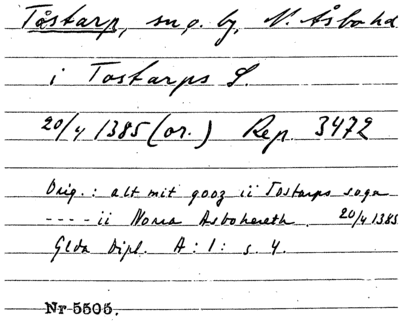 Tåstarp, sn o. by, N. Åsbo hd
i Tostarps S.
20/4 1385 (or.) Rep. 3472
Orig.: alt mit gooz ii Tostarps sogn
---- ii Norra Asbohereth. 20/4 1385
Glda Dipl. A: 1: s. 4.
Nr 5505.